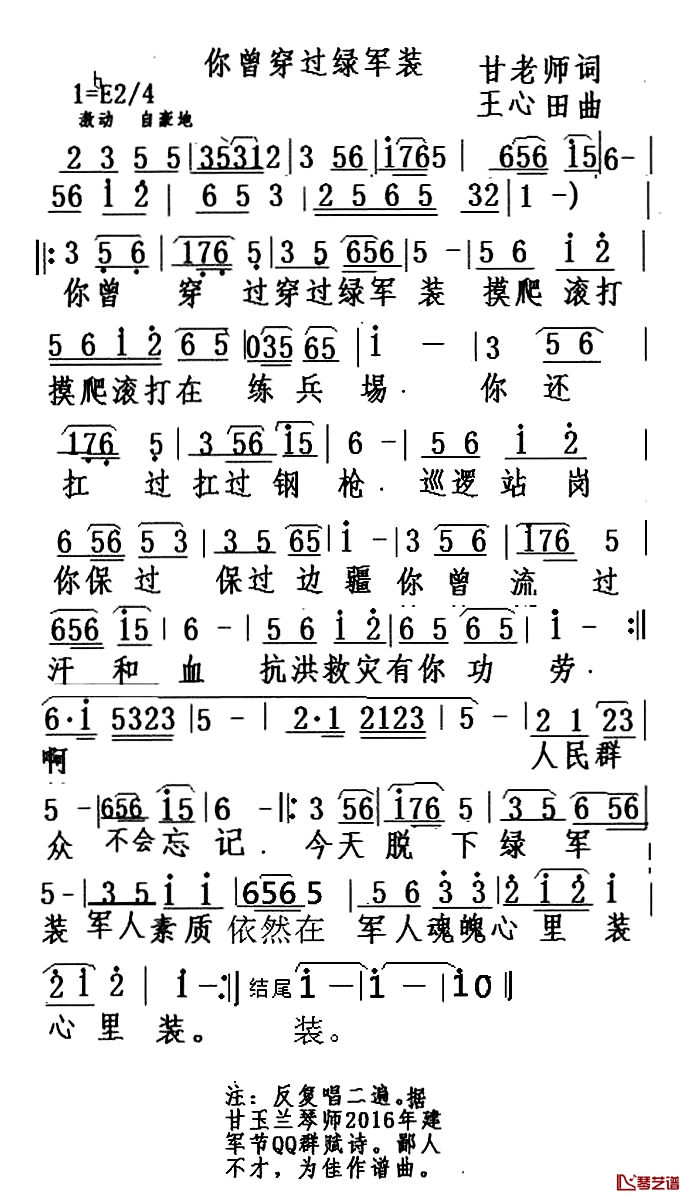 你曾穿过绿军装
甘老师词
1=♮E2/4
王心田曲
激动 自豪地
2 3 5 5 | 35312 | 3 56 | i765 | 656 i5 | 6- |
56 i 2 | 6 5 3 | 2 5 6 5 32 | 1 -)
‖: 3 5 6 | 176 5 | 3 5 656 | 5 - | 5 6 i 2
你曾 穿 过穿过绿军 装 摸爬 滚打
5 6 i 2 6 5 | 035 65 | i - | 3 5 6 |
摸爬滚打在 练兵 場. 你 还
176 5 | 3 56 i5 | 6 - | 5 6 i 2
扛 过扛过 钢 枪. 巡逻 站 岗
6 56 5 3 | 5 3 65 | i - | 3 5 6 | i76 5 |
你保 过 保过边疆 你曾 流 过
656 i5 | 6 - | 5 6 i 2 | 6 5 6 5 | i - :‖
汗 和 血 抗洪救灾有你功 劳.
6·i 5323 | 5 - | 2·1 2123 | 5 - | 2 1 23 |
啊 人民群
5 - | 656 i5 | 6 - ‖: 3 56 | i76 5 | 3 5 6 56 |
众 不会忘记. 今天 脱 下 绿 军
5- | 3 5 i i | 656 5 | 5 6 3 3 | 2 i 2 i |
装 军人素质 依然在 军人魂魄心 里 装
2i 2 | i -:‖ 结尾 i - | i - | i 0 ‖
心里 装。 装。
注：反复唱二遍。据
甘玉兰琴师2016年建
军节QQ群赋诗。鄙人
不才，为佳作谱曲。
琴艺谱